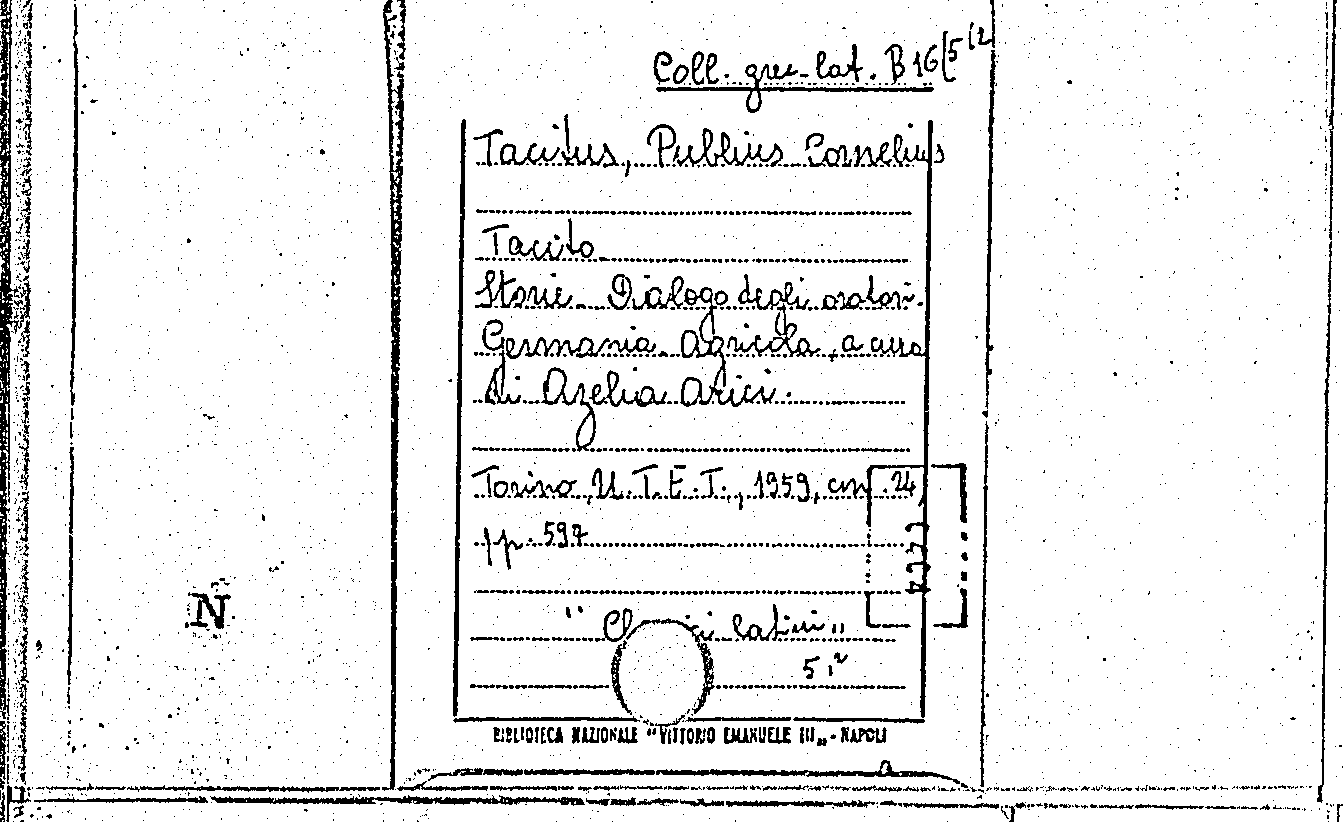 Coll. grec-lat. B 16(5(2
Tacitus, Publius Cornelius
Tacito
Storie. Dialogo degli oratori.
Germania. Agricola, a cura
di Azelia Arici.
Torino, U.T.E.T., 1959, cm. 24,
pp. 597
" latini"
5,2
N
BIBLIOTECA NAZIONALE "VITTORIO EMANUELE III" - NAPOLI